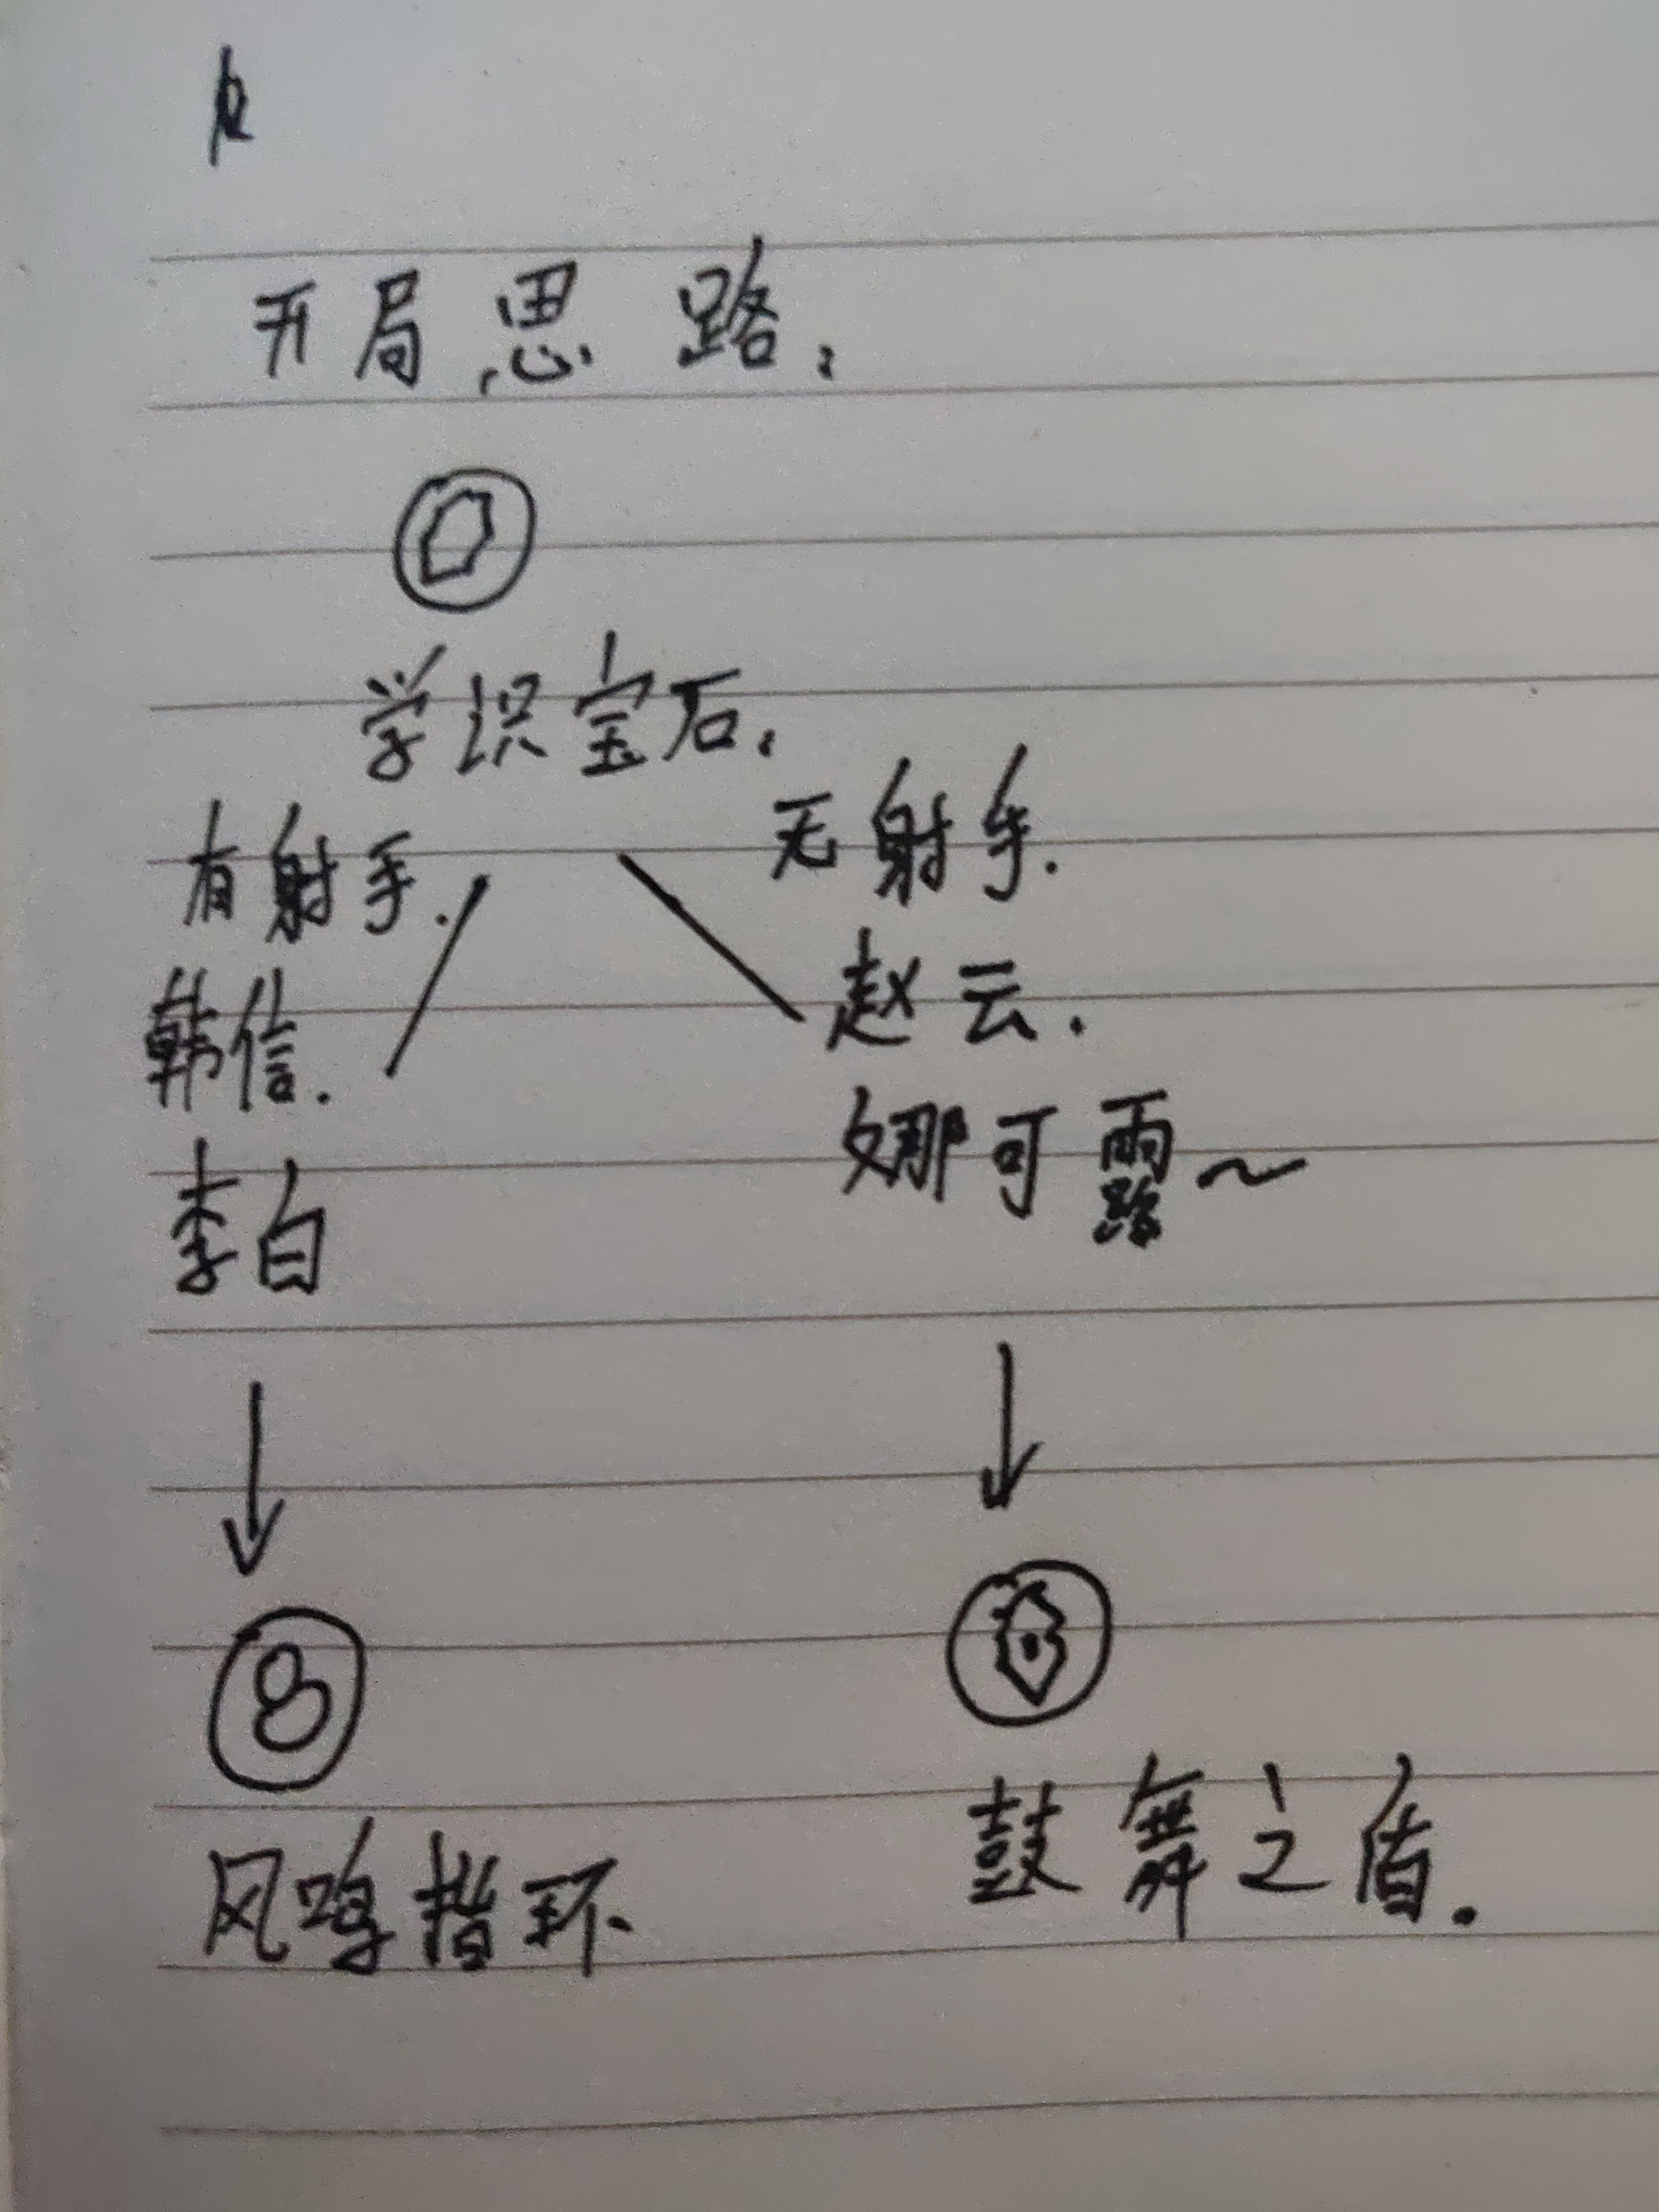 开局思路，
学识宝石，
有射手. 无射手.
韩信. 赵云.
李白 娜可露~
风鸣指环、 鼓舞之盾.